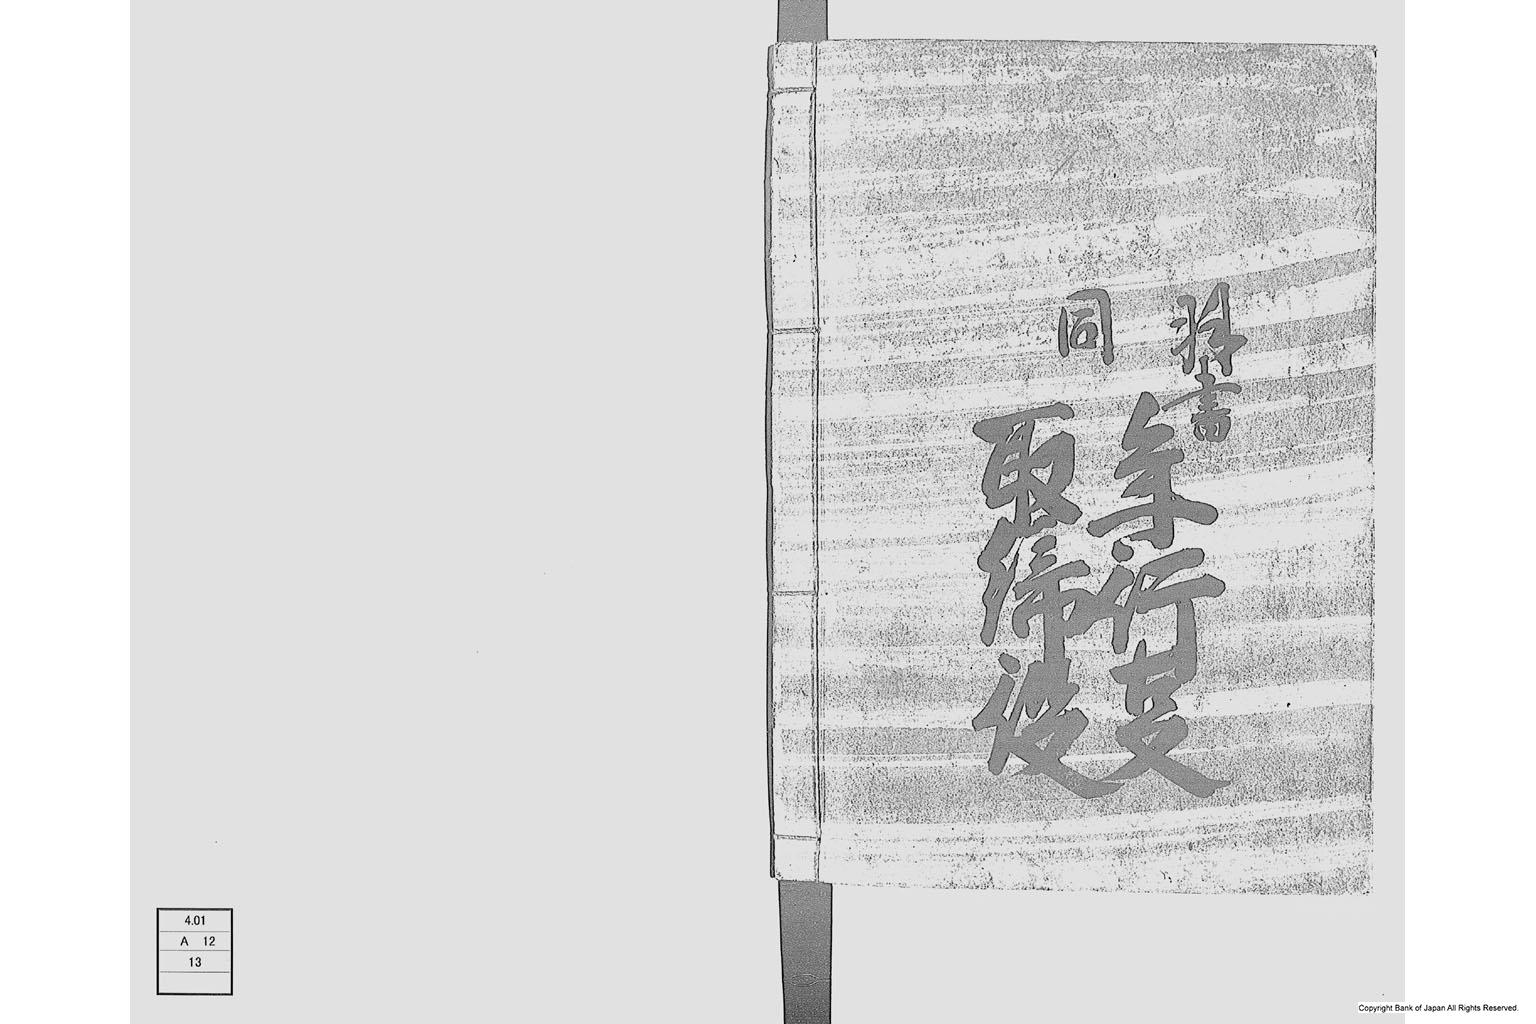 羽書
年行叓
同
取締役
4.01
A 12
13
Copyright Bank of Japan All Rights Reserved.